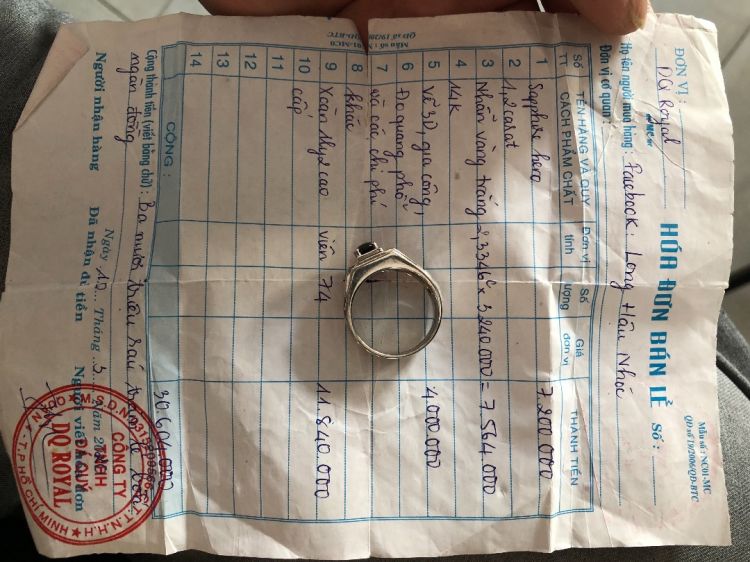 ĐƠN VỊ :
DQ Royal
HÓA ĐƠN BÁN LẺ
Mẫu số : NC01-MC
QĐ số 19/2006/QĐ-BTC
Số :
Họ tên người mua hàng : Facebook: Long Hậu Nhóc
Đơn vị cơ quan :
SỐ TT
TÊN HÀNG VÀ QUY CÁCH PHẨM CHẤT
Đơn vị tính
Số lượng
Giá đơn vị
THÀNH TIỀN
1 Sapphire hero 7.200.000
2 1,2 carat
3 Nhẫn vàng trắng 2,3346c x 3.240.000 = 7.564.000
4 14K
5 Vẽ 3D, gia công, 4.000.000
6 Đo quang phổ
7 và các chi phí
8 khác
9 Xoàn Mỹ cao viên 74 11.840.000
10 cấp
11
12
13
14
CỘNG : 30.604.000
Cộng thành tiền (viết bằng chữ) : Ba mươi triệu sáu trăm lẻ bốn
ngàn đồng
Ngày 12 Tháng 5 Năm
Người nhận hàng
Đã nhận đủ tiền
Người viết hóa đơn
CÔNG TY
TNHH
ĐÁ QUÝ
DQ ROYAL
T.P HỒ CHÍ MINH